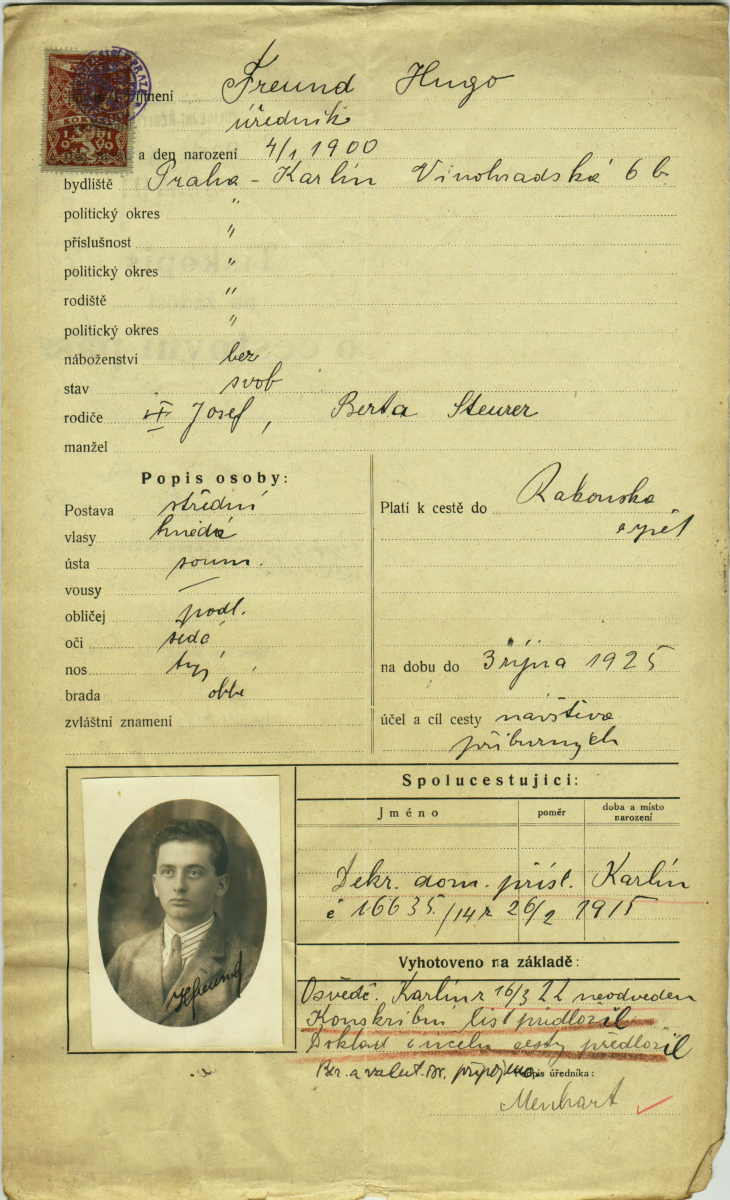 jmení Freund Hugo
úředník
a den narození 4/1 1900
bydliště Praha - Karlín Vinohradská 6 b.
politický okres "
příslušnost "
politický okres "
rodiště "
politický okres "
náboženství bez
stav svob
rodiče Josef, Berta Steurer
manžel
Popis osoby:
Postava střední
vlasy hnědá
ústa soum.
vousy —
obličej podl.
oči šedá
nos
brada obbe
zvláštní znamení
Platí k cestě do Rakouska
a zpět
na dobu do 3 října 1925
účel a cíl cesty návštěva
příbuzných
Spolucestující:
Jméno poměr doba a místo
narození
Dekr. dom. přísl. Karlín
č 16635/14 z 26/2 1915
Vyhotoveno na základě:
Osvědč. Karlín z 16/3 22 neodveden
Konskribní list předložil
Doklad o účelu cesty předložil
Ber. a valut. připojeno.
Podpis úředníka:
Menhart
HFreund